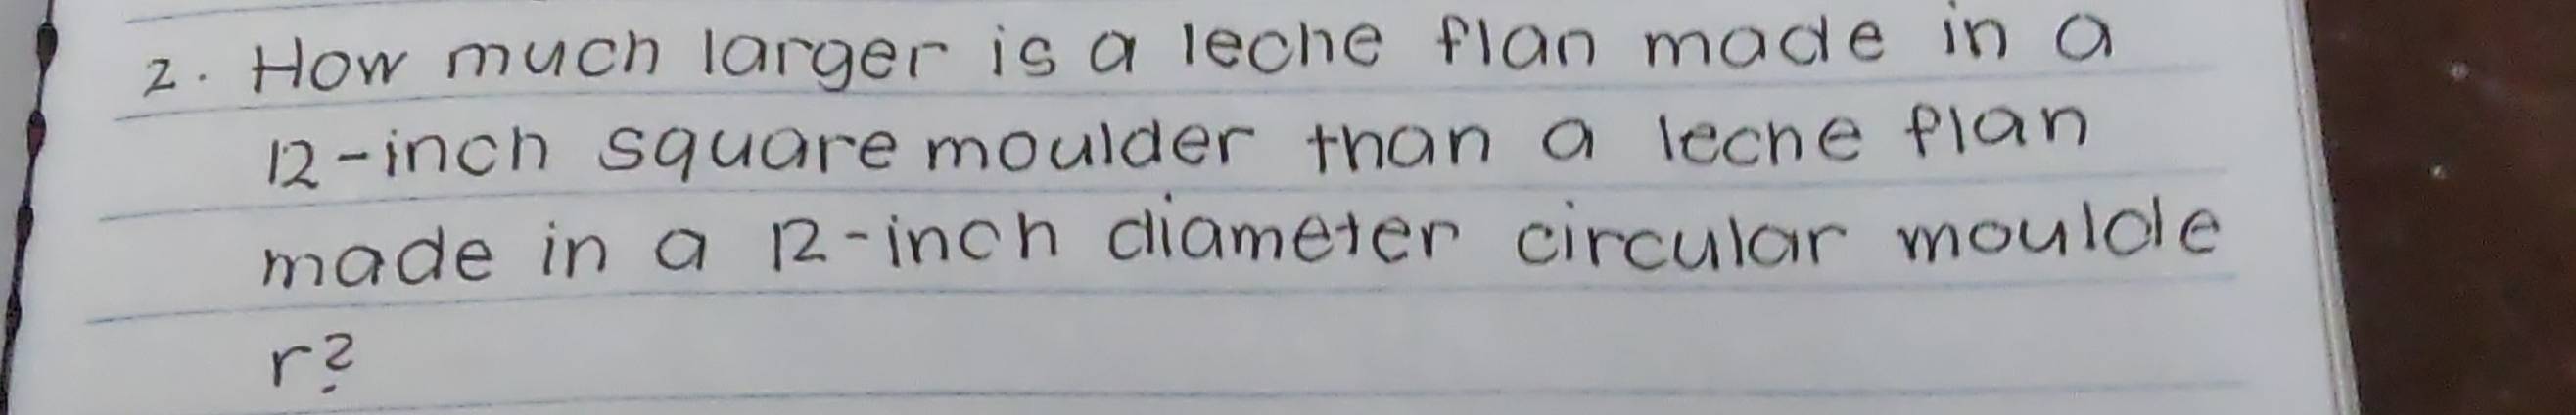 2. How much larger is a leche flan made in a
12-inch square moulder than a leche flan
made in a 12-inch diameter circular moulde
r?